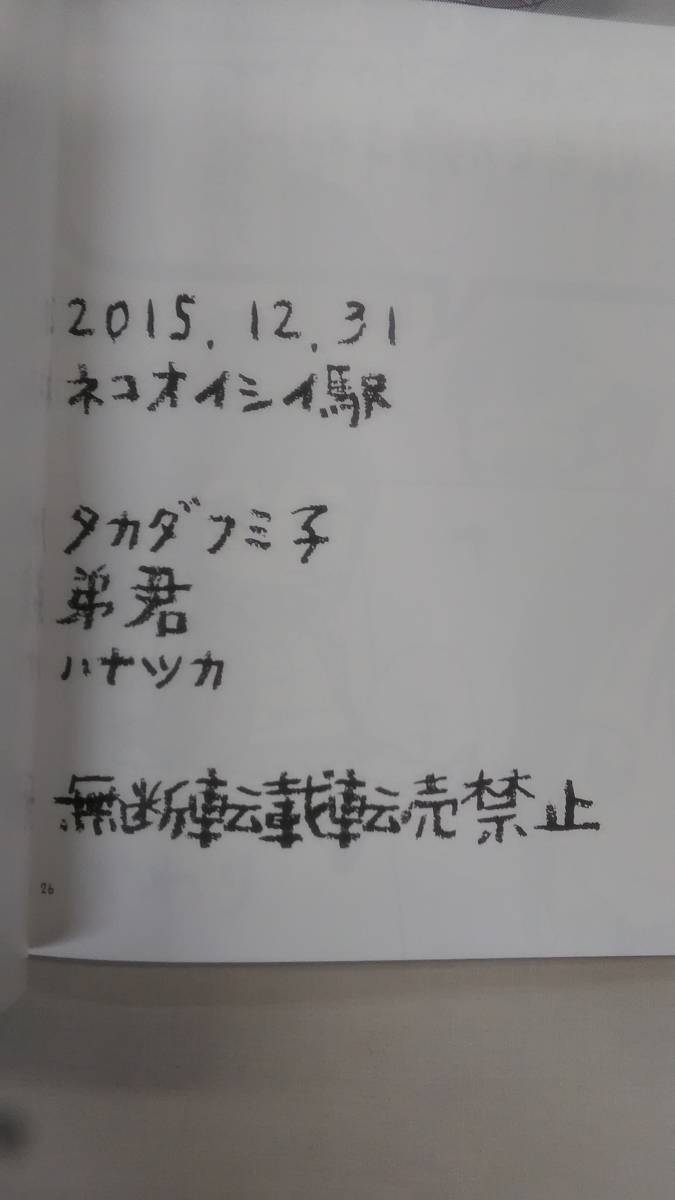 2015.12.31
ネコオイシイ駅
タカダフミ子
弟君
ハナツカ
無断転載転売禁止
26